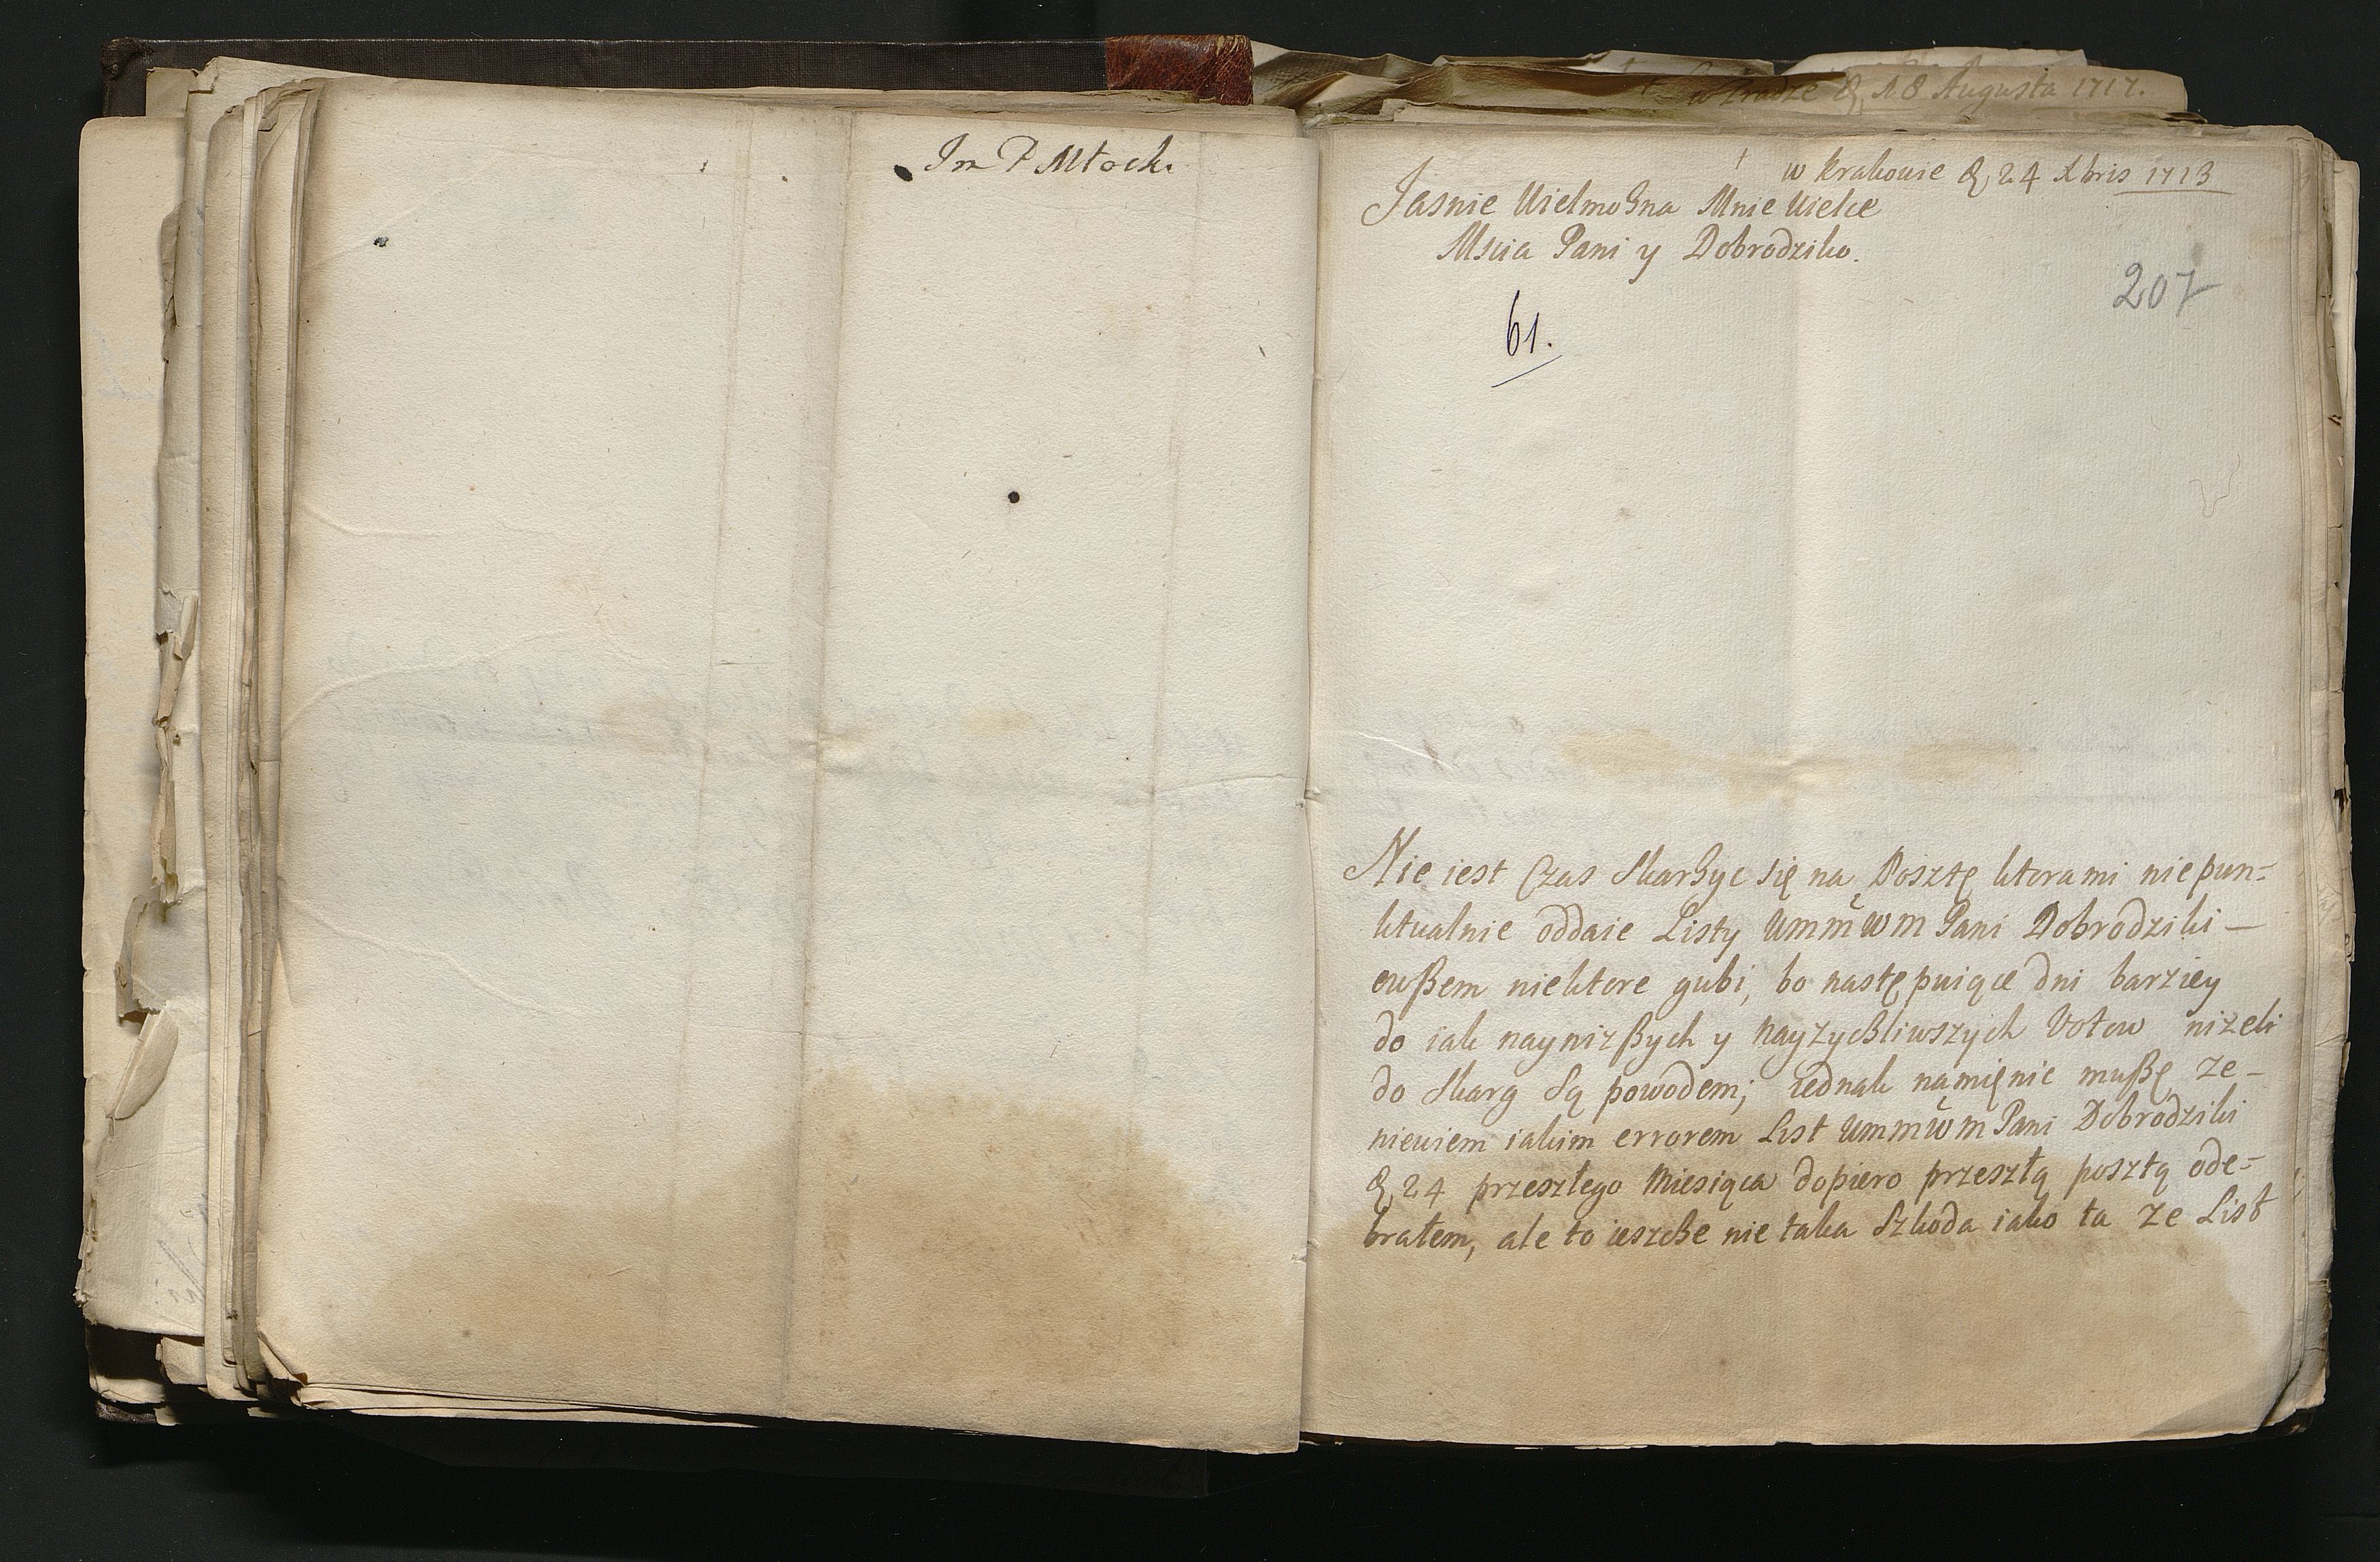 Im P Młocki
w Zradze d, 18 Augusta 1717.
w Krakowie d, 24 Xbris 1713
Jasnie Wielmozna Mnie Wielce
Mscia Pani y Dobrodziko.
207
61.
Nie iest Czas skarzyc się na Posztę ktora mi niepun=
ktualnie oddaie Listy WmmWm Pani Dobrodziki —
owßem niektore gubi, bo następuiące dni barziey
do iak naynizßych y nayzycźliwszych Votow nizeli
do skarg są powodem; iednak namięnic mußę ze —
niewiem iakim errorem List WmmWm Pani Dobrodziki
d, 24 przeszłego Miesiąca dopiero przeszłą posztą ode=
brałem, ale to ieszcze nie taka szkoda iako ta ze List